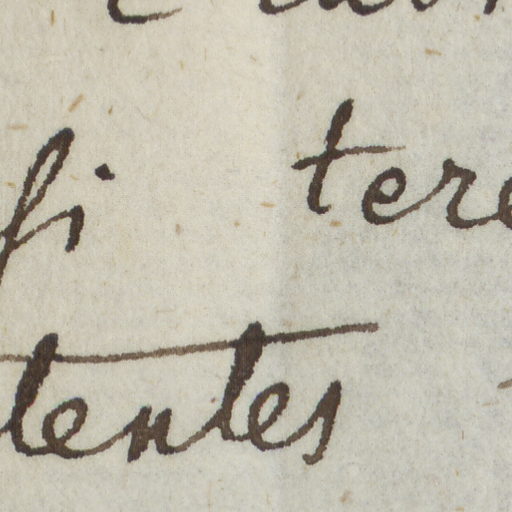 si tere
tentes